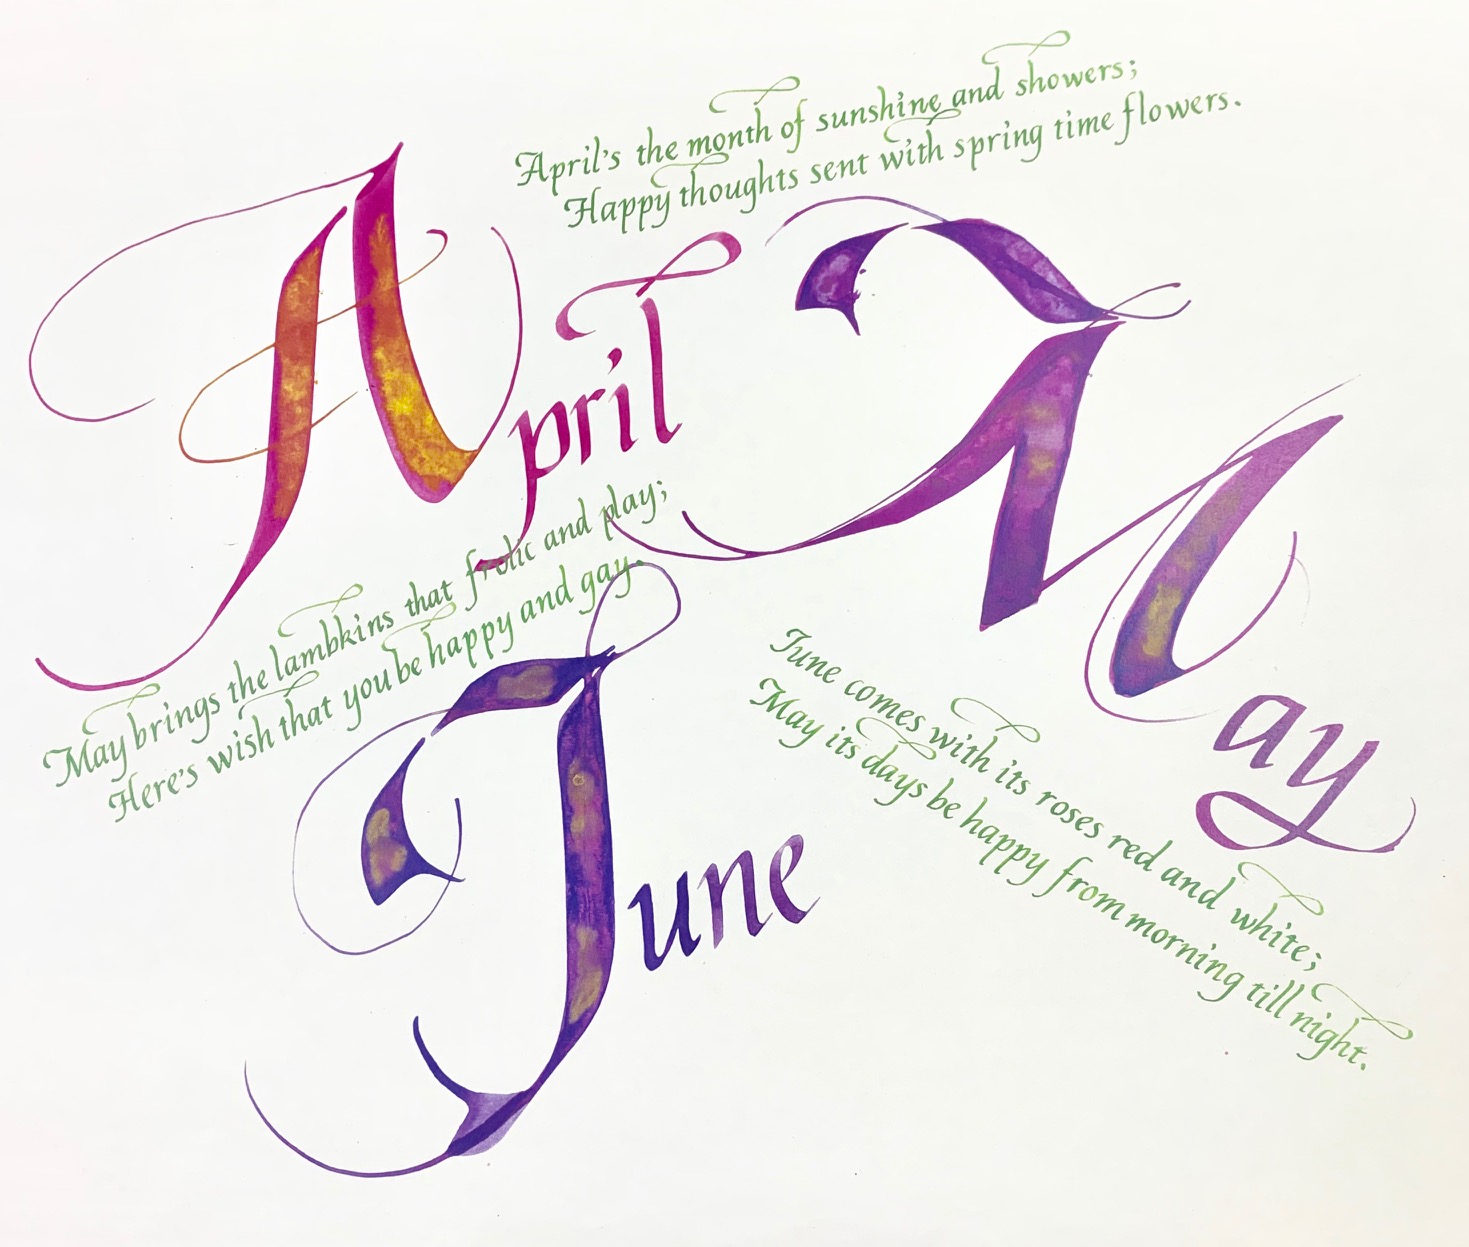 April's the month of sunshine and showers;
Happy thoughts sent with spring time flowers.
April
May
May brings the lambkins that frolic and play;
Here's wish that you be happy and gay.
June
June comes with its roses red and white;
May its days be happy from morning till night.